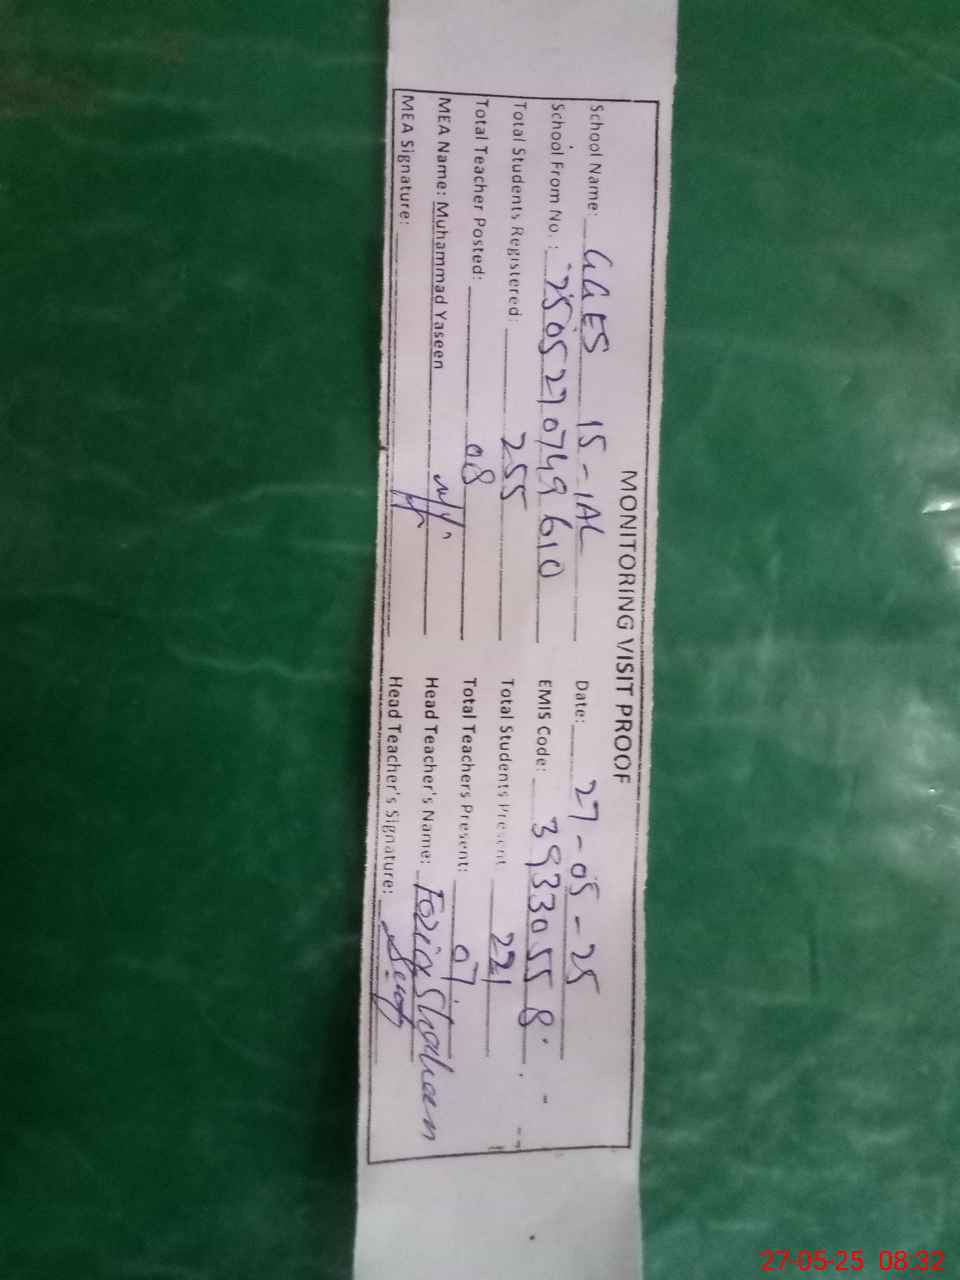 MONITORING VISIT PROOF
School Name: GGES 15-1AL Date: 27-05-25
School From No. : 2505270749610 EMIS Code: 39330558
Total Students Registered: 255 Total Students Present 221
Total Teacher Posted: 08 Total Teachers Present: 07
MEA Name: Muhammad Yaseen Head Teacher's Name: Fozia Shaheen
MEA Signature: Head Teacher's Signature:
27-05-25 08:32